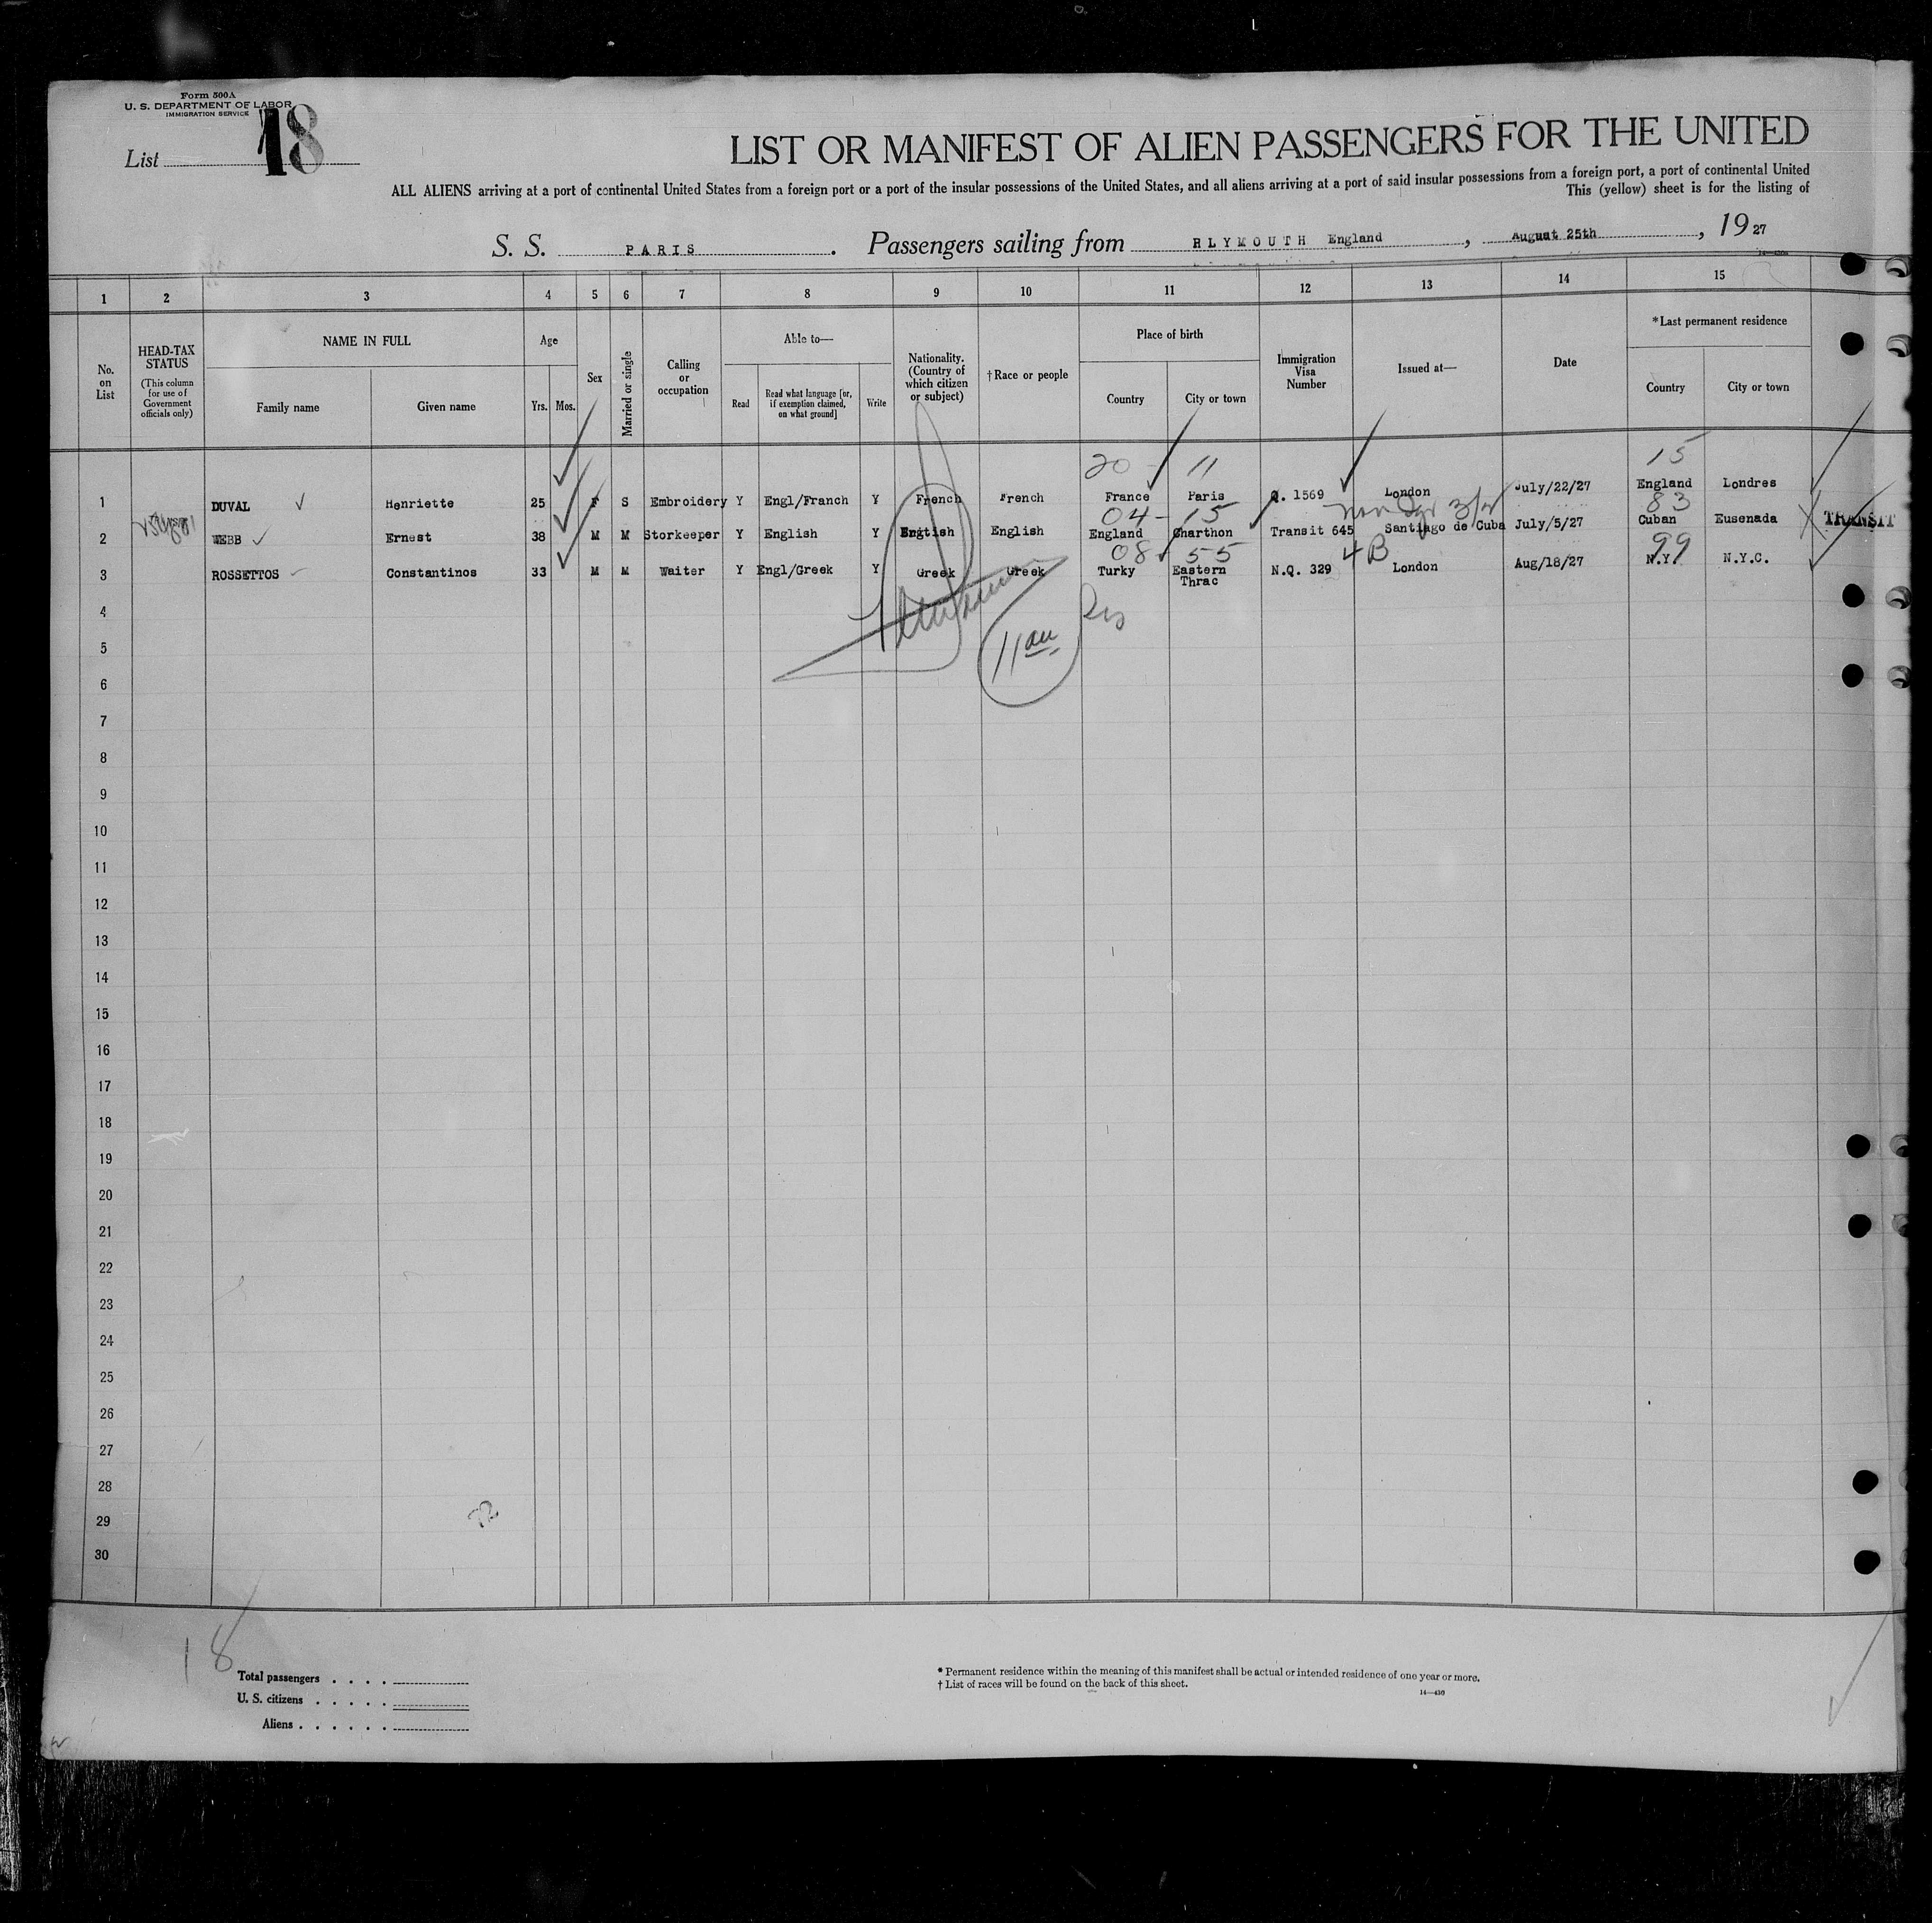 Form 500A
U. S. DEPARTMENT OF LABOR
IMMIGRATION SERVICE
List 18
LIST OR MANIFEST OF ALIEN PASSENGERS FOR THE UNITED
ALL ALIENS arriving at a port of continental United States from a foreign port or a port of the insular possessions of the United States, and all aliens arriving at a port of said insular possessions from a foreign port, a port of continental United
This (yellow) sheet is for the listing of
S. S. PARIS. Passengers sailing from RLYMOUTH England, August 25th, 19 27
1 2 3 4 5 6 7 8 9 10 11 12 13 14 15
No. on List
HEAD-TAX STATUS (This column for use of Government officials only)
NAME IN FULL
Family name Given name
Age
Yrs. Mos.
Sex
Married or single
Calling or occupation
Able to—
Read Read what language [or, if exemption claimed, on what ground] Write
Nationality. (Country of which citizen or subject)
†Race or people
Place of birth
Country City or town
Immigration Visa Number
Issued at—
Date
*Last permanent residence
Country City or town
20 - 11 15
1 DUVAL Henriette 25 F S Embroidery Y Engl/Franch Y French French France Paris Q. 1569 London July/22/27 England Londres
04 - 15 83
2 WEBB Ernest 38 M M Storkeeper Y English Y English English England Charthon Transit 645 Santiago de Cuba July/5/27 Cuban Eusenada TRANSIT
08 55 4B 99
3 ROSSETTOS Constantinos 33 M M Waiter Y Engl/Greek Y Greek Greek Turky Eastern Thrac N.Q. 329 London Aug/18/27 N.Y. N.Y.C.
4
5
6
7
8
9
10
11
12
13
14
15
16
17
18
19
20
21
22
23
24
25
26
27
28
29
30
18
Total passengers . . . .
U. S. citizens . . . . .
Aliens . . . . . .
* Permanent residence within the meaning of this manifest shall be actual or intended residence of one year or more.
† List of races will be found on the back of this sheet.
14—430